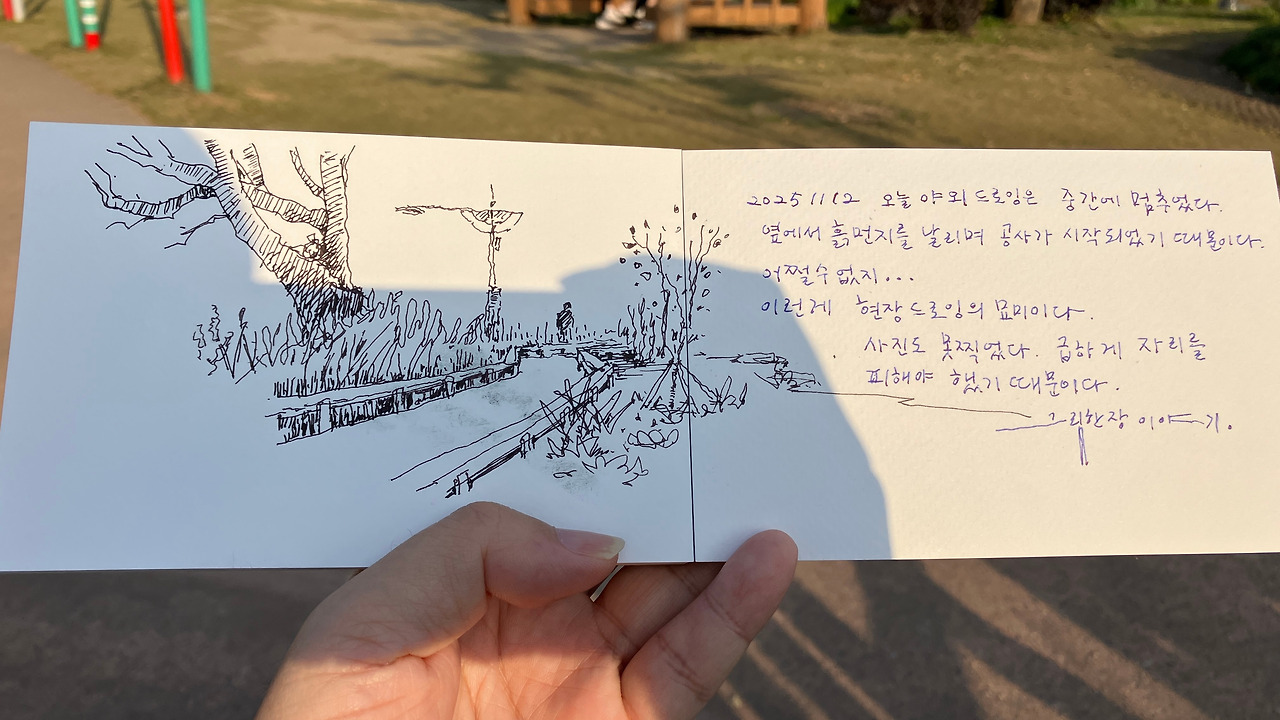 20251112 오늘 야외 드로잉은 중간에 멈추었다.
옆에서 흙먼지를 날리며 공사가 시작되었기 때문이다.
어쩔수 없지...
이런게 현장드로잉의 묘미이다.
사진도 못찍었다. 급하게 자리를
피해야 했기 때문이다.
그림한장 이야기.